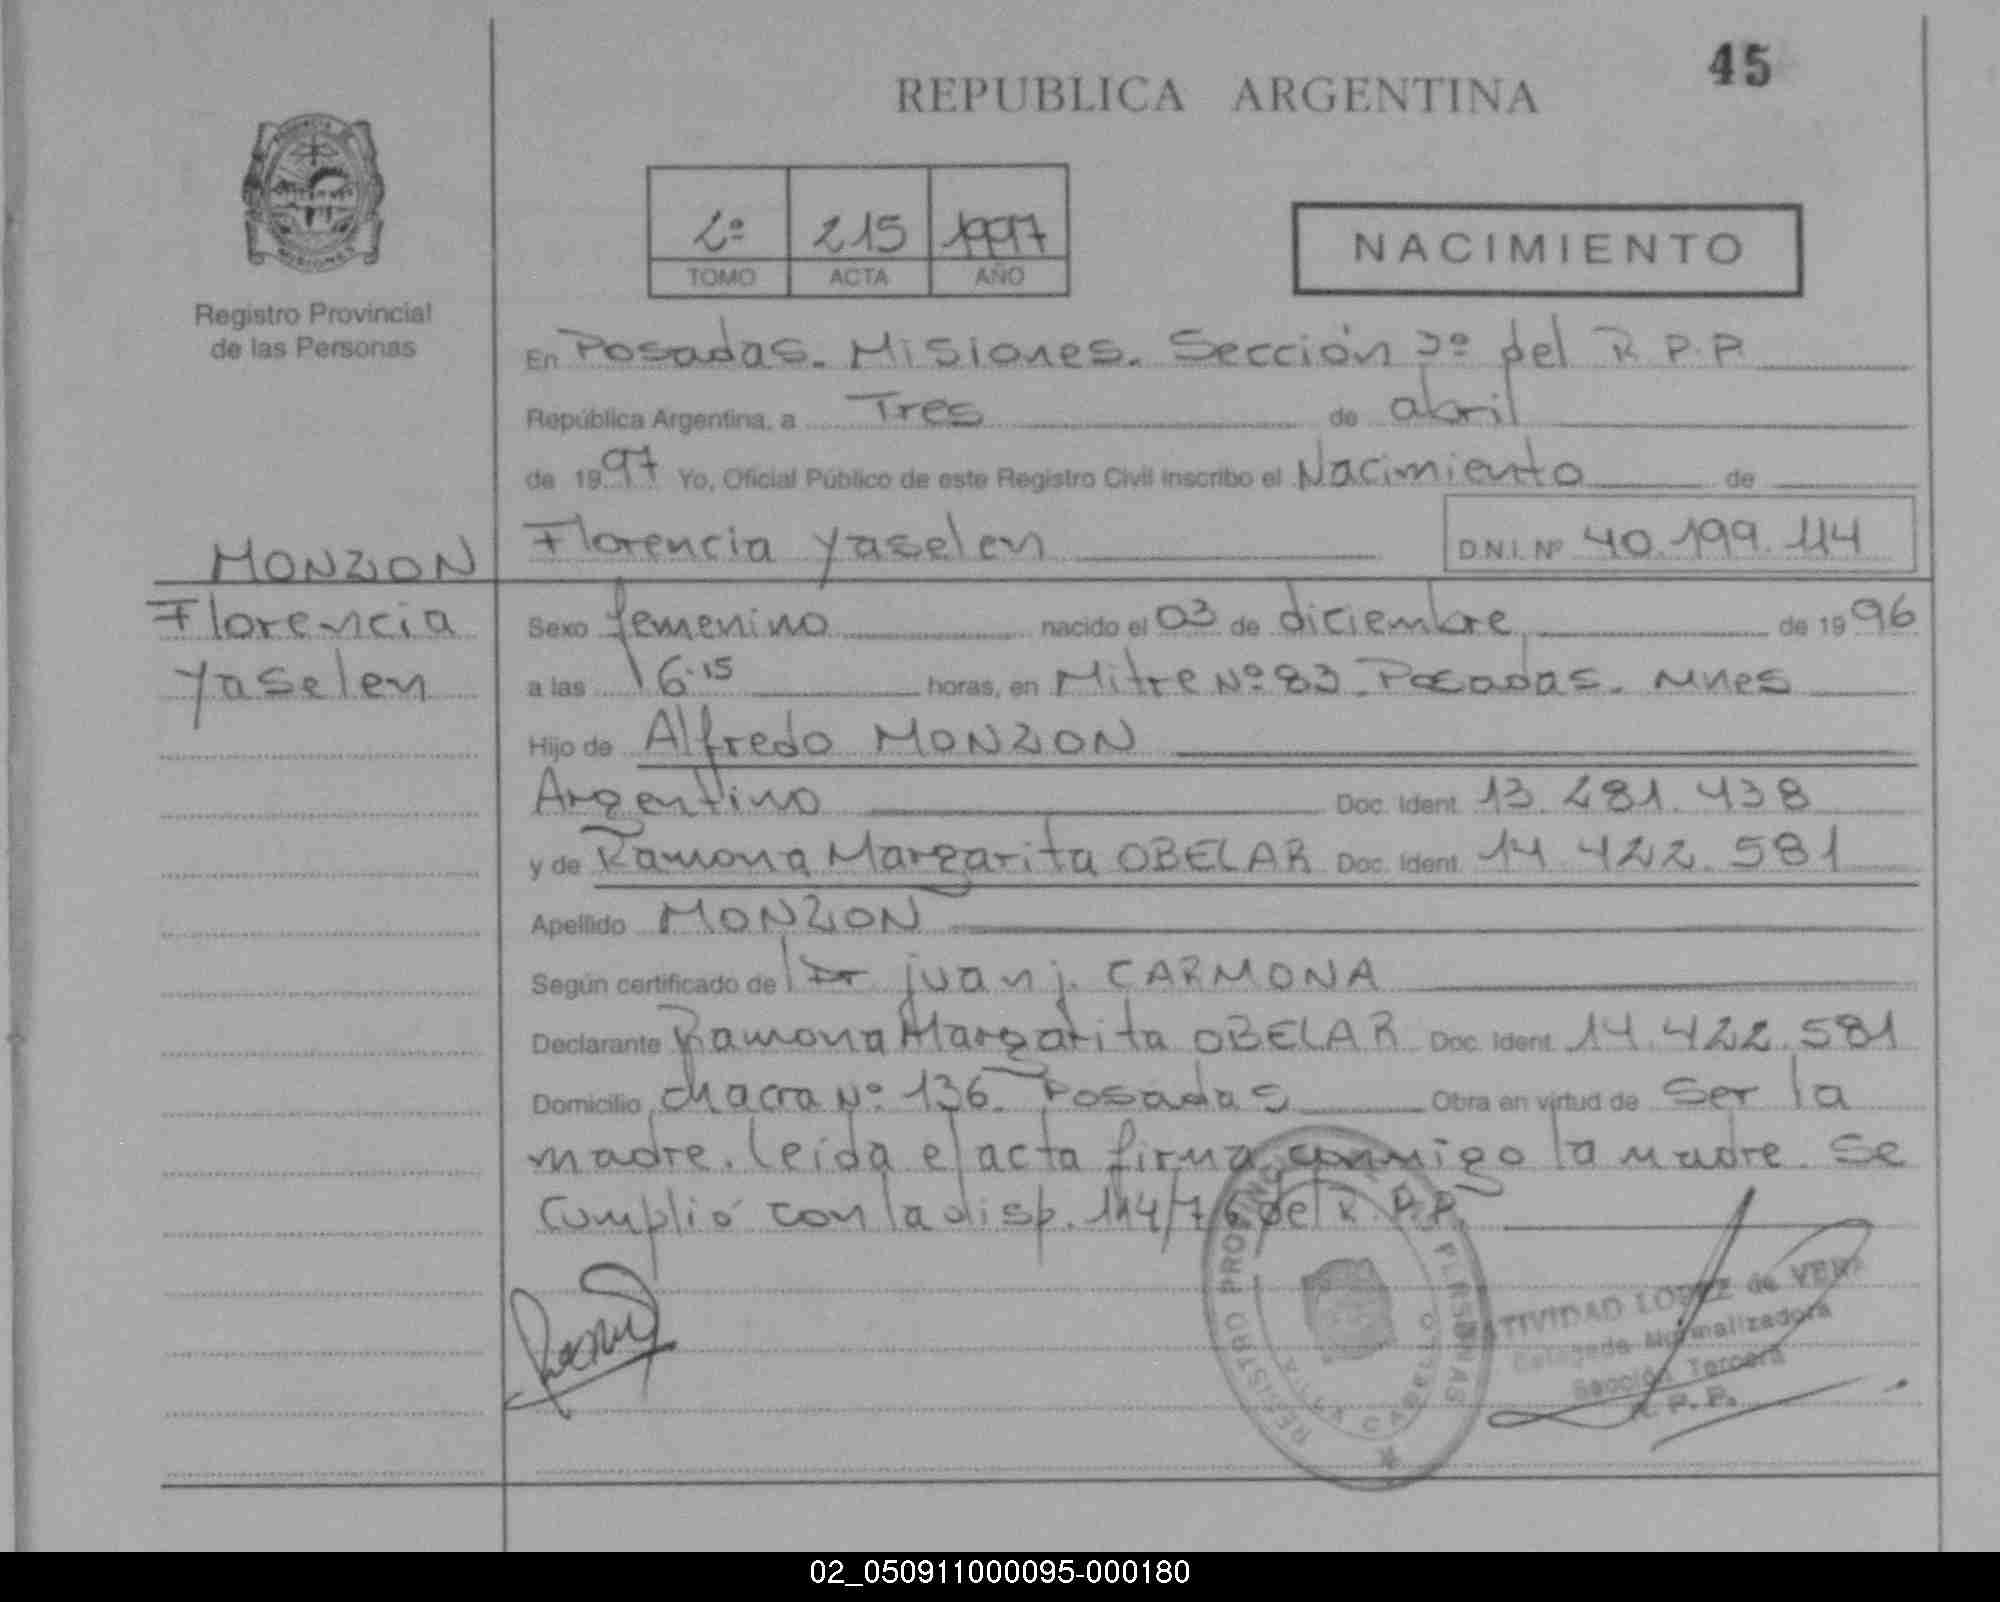 45
REPUBLICA ARGENTINA
2º 215 1997
TOMO ACTA AÑO
NACIMIENTO
Registro Provincial
de las Personas
En Posadas. Misiones. Sección 3º del R.P.P.
República Argentina, a Tres de abril
de 1997 Yo, Oficial Público de este Registro Civil inscribo el Nacimiento de
Florencia Yaselen D.N.I. Nº 40.199.114
MONZON
Florencia
Yaselen
Sexo femenino nacido el 03 de diciembre de 1996
a las 16.15 horas, en Mitre Nº 83. Posadas. Mnes
Hijo de Alfredo MONZON
Argentino Doc. Ident. 13.281.438
y de Ramona Margarita OBELAR Doc. Ident. 14.422.581
Apellido MONZON
Según certificado de Dr juan j. CARMONA
Declarante Ramona Margarita OBELAR Doc. Ident. 14.422.581
Domicilio chacra Nº 136. Posadas Obra en virtud de ser la
madre. leída el acta firma conmigo la madre. Se
cumplió con la disp. 114/76 del R.P.P.
REGISTRO PROVINCIAL DE LAS PERSONAS
VILLA CABELLO
NATIVIDAD LOPEZ de VERA
Delegada Normalizadora
Sección Tercera
R.P.P.
02_050911000095-000180